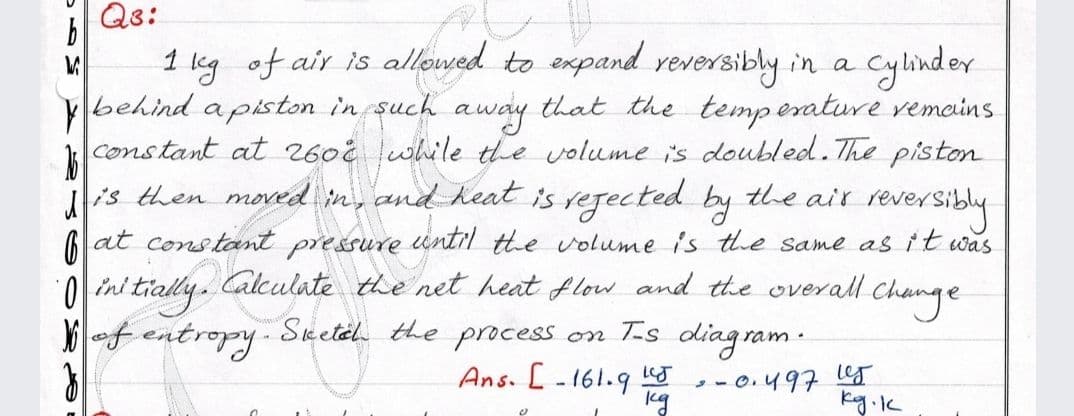 Q3:
1 kg of air is allowed to expand reversibly in a cylinder
behind a piston in such away that the temperature remains
constant at 260°c while the volume is doubled. The piston
is then moved in, and heat is rejected by the air reversibly
at constant pressure until the volume is the same as it was
initially. Calculate the net heat flow and the overall change
of entropy. Sketch the process on T-s diagram.
Ans. [ -161.9 kJ/kg , -0.497 kJ/kg.k